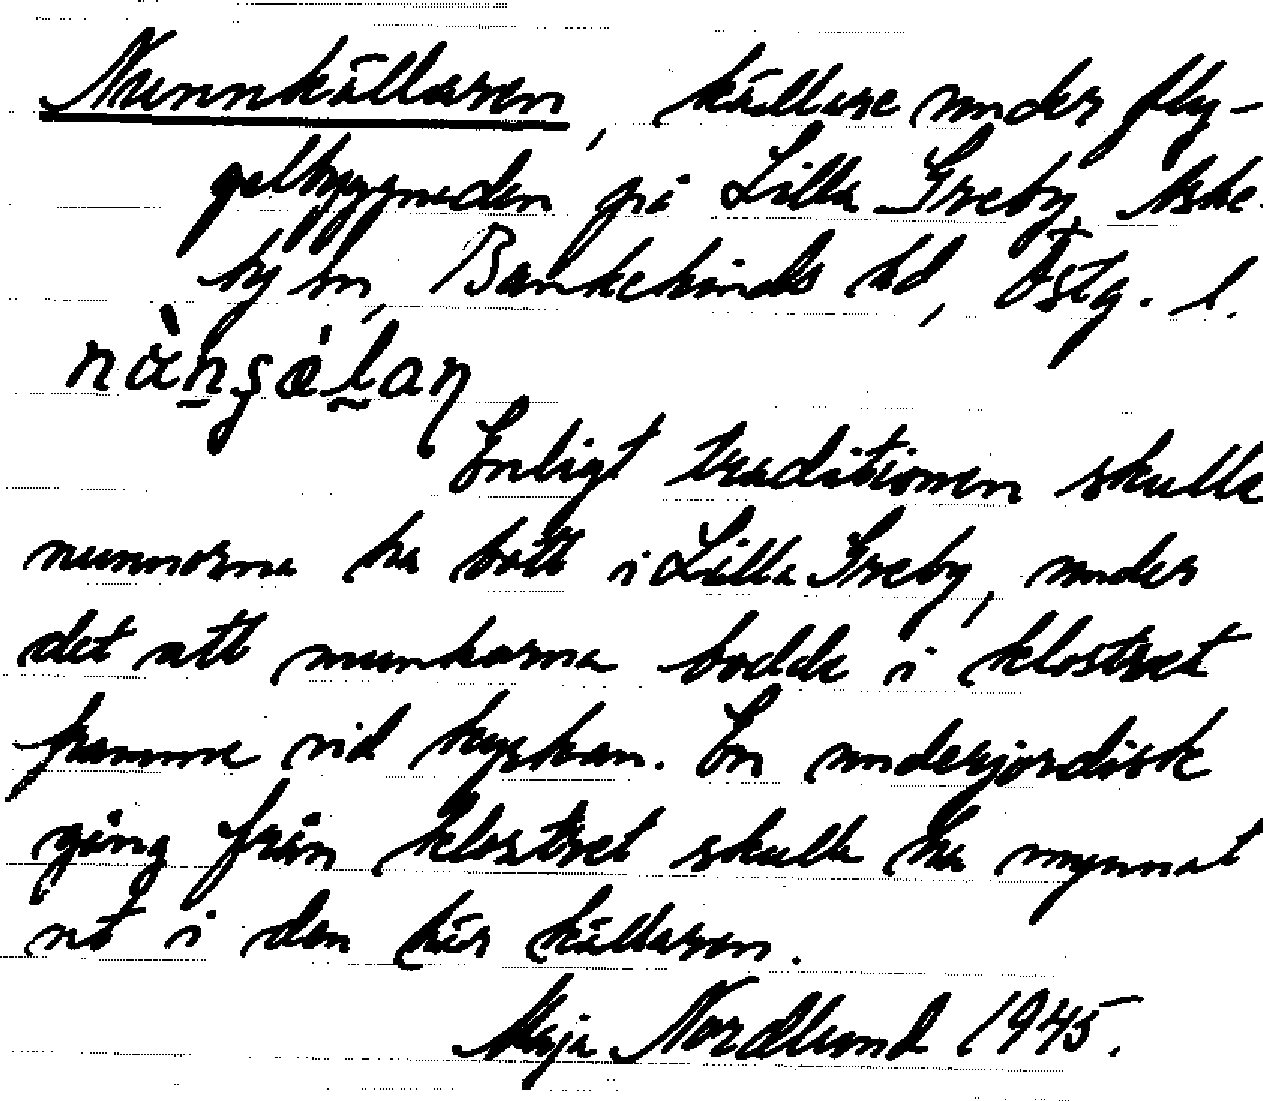 Nunnkällaren, källare under fly-
gelbyggnaden på Lilla Greby, Aske-
by sn, Bankekinds hd, Östg. l.
Enligt traditionen skulle
nunnorna ha bott i Lilla Greby, under
det att munkarna bodde i klostret
framme vid kyrkan. En underjordisk
gång från klostret skulle ha mynnat
ut i den här källaren.
Maja Nordlund 1945.